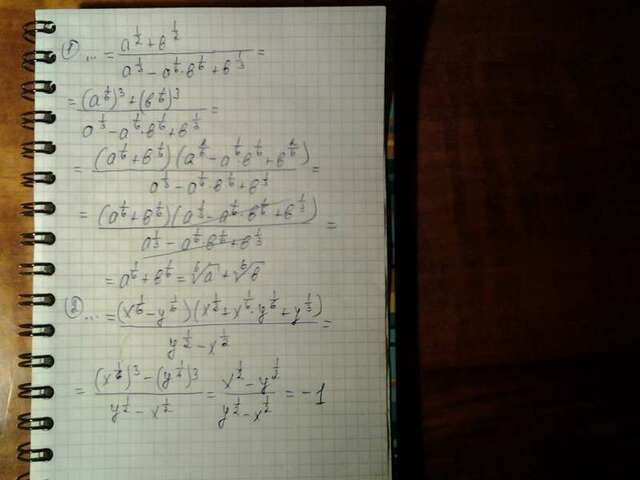 1) ... = (a^(1/2) + b^(1/2)) / (a^(1/3) - a^(1/6) · b^(1/6) + b^(1/3)) =
= ((a^(1/6))^3 + (b^(1/6))^3) / (a^(1/3) - a^(1/6) · b^(1/6) + b^(1/3)) =
= (a^(1/6) + b^(1/6))(a^(2/6) - a^(1/6) · b^(1/6) + b^(2/6)) / (a^(1/3) - a^(1/6) · b^(1/6) + b^(1/3)) =
= (a^(1/6) + b^(1/6))(a^(1/3) - a^(1/6) · b^(1/6) + b^(1/3)) / (a^(1/3) - a^(1/6) · b^(1/6) + b^(1/3)) =
= a^(1/6) + b^(1/6) = ⁶√a + ⁶√b
2) ... = (x^(1/6) - y^(1/6))(x^(1/2) + x^(1/6) · y^(1/6) + y^(1/3)) / (y^(1/2) - x^(1/2)) =
= ((x^(1/6))^3 - (y^(1/6))^3) / (y^(1/2) - x^(1/2)) = (x^(1/2) - y^(1/2)) / (y^(1/2) - x^(1/2)) = -1